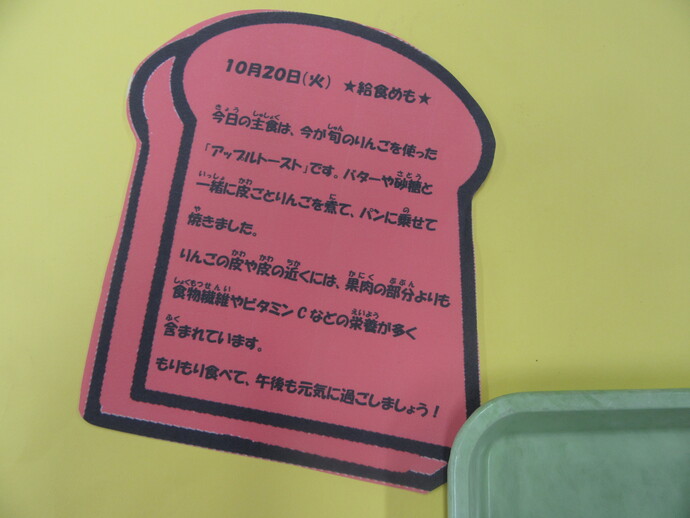 10月20日(火) ★給食めも★
今日の主食は、今が旬のりんごを使った
「アップルトースト」です。バターや砂糖と
一緒に皮ごとりんごを煮て、パンに乗せて
焼きました。
りんごの皮や皮の近くには、果肉の部分よりも
食物繊維やビタミンCなどの栄養が多く
含まれています。
もりもり食べて、午後も元気に過ごしましょう！